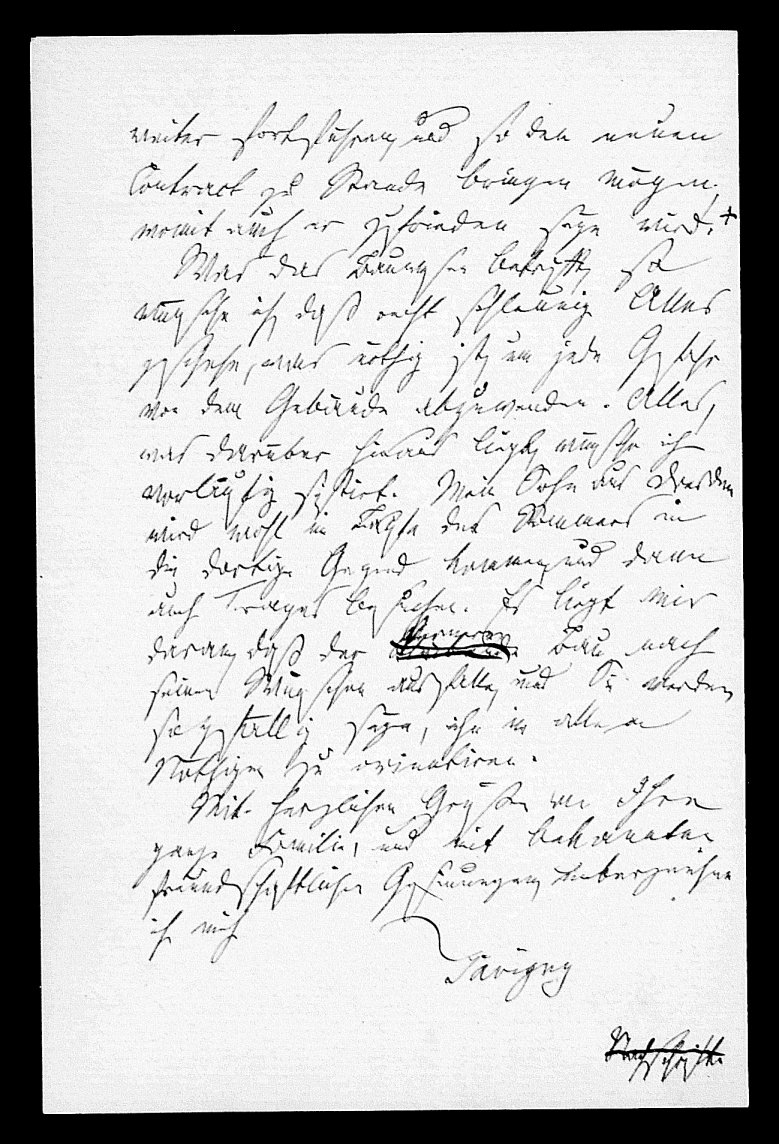 weiter fortführen, und so den neuen
Contract zu Stande bringen mögen,
womit auch er zufrieden seyn wird.+
Was das Bauwesen betrifft, so
wünsche ich, daß recht schleunig Alles
geschehe, was nöthig ist, um jede Gefahr
von dem Gebäude abzuwenden. Alles,
was darüber hinaus liegt, wünsche ich
vorläufig sistirt. Mein Sohn aus Dresden
wird wohl im Laufe des Sommers in
die dortige Gegend kommen, und dann
auch Trages besuchen. Es liegt mir
daran, daß der Bau nach
seinen Wünschen ausfalle, und Sie werden
so gefällig seyn, ihn in allem
Nöthigen zu orientiren.
Mit herzlichen Grüßen an Ihre
ganze Familie, und mit bekannten
freundschaftlichen Gesinnungen unterzeichne
ich mich
Savigny
Nachschrift.